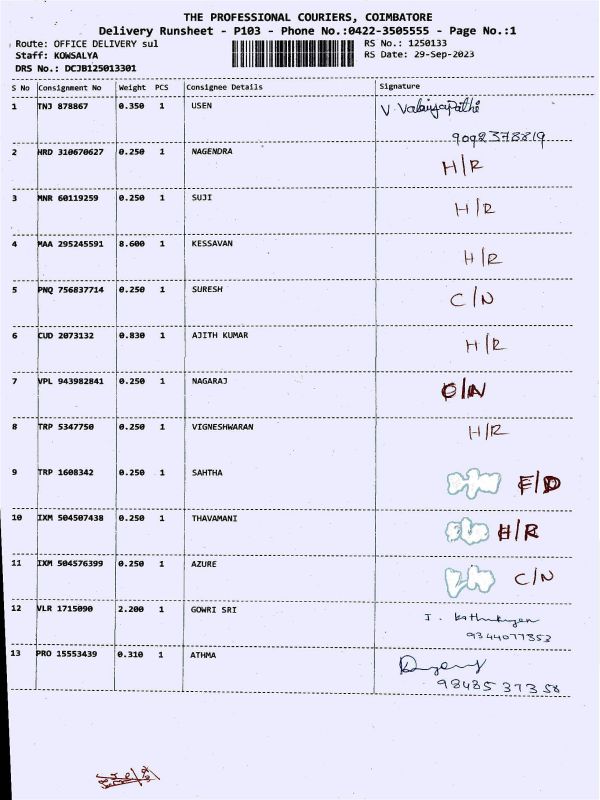 THE PROFESSIONAL COURIERS, COIMBATORE
Delivery Runsheet - P103 - Phone No.:0422-3505555 - Page No.:1
Route: OFFICE DELIVERY sul RS No.: 1250133
Staff: KOWSALYA RS Date: 29-Sep-2023
DRS No.: DCJB125013301
S No Consignment No Weight PCS Consignee Details Signature
1 TNJ 878867 0.350 1 USEN
9092378819
2 HRD 310670627 0.250 1 NAGENDRA H/R
3 MNR 60119259 0.250 1 SUJI H/R
4 MAA 295245591 8.600 1 KESSAVAN H/R
5 PNQ 756837714 0.250 1 SURESH C/N
6 CUD 2073132 0.830 1 AJITH KUMAR H/R
7 VPL 943982841 0.250 1 NAGARAJ
8 TRP 5347750 0.250 1 VIGNESHWARAN H/R
9 TRP 1608342 0.250 1 SAHTHA
10 IXM 504507438 0.250 1 THAVAMANI H/R
11 IXM 504576399 0.250 1 AZURE C/N
12 VLR 1715090 2.200 1 GOWRI SRI
9344077853
13 PRO 15553439 0.310 1 ATHMA